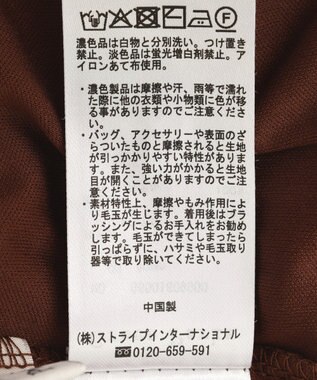 濃色品は白物と分別洗い。つけ置き
禁止。淡色品は蛍光増白剤禁止。ア
イロンあて布使用。
・濃色製品は摩擦や汗、雨等で濡れ
た際に他の衣類や小物類に色が移
る事がありますのでご注意下さい。
・バッグ、アクセサリーや表面のざ
らついたものと摩擦されると生地
が引っかかりやすい特性がありま
す。また、強い力がかかると生地
目が開くことがありますのでご注
意下さい。
・素材特性上、摩擦やもみ作用によ
り毛玉が生じます。着用後はブラ
ッシングによるお手入れをお勧め
します。毛玉ができてしまったら
引っぱらずに、ハサミや毛玉取り
器等で取り除いて下さい。
中国製
(株)ストライプインターナショナル
0120-659-591